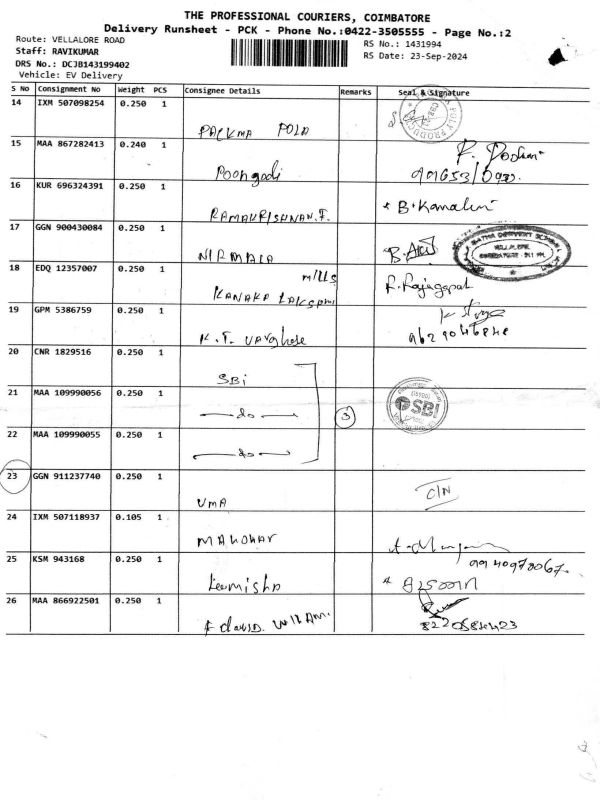 THE PROFESSIONAL COURIERS, COIMBATORE
Delivery Runsheet - PCK - Phone No.:0422-3505555 - Page No.:2
Route: VELLALORE ROAD
RS No.: 1431994
Staff: RAVIKUMAR
RS Date: 23-Sep-2024
DRS No.: DCJB143199402
Vehicle: EV Delivery
S No Consignment No Weight PCS Consignee Details Remarks Seal & Signature
14 IXM 507098254 0.250 1
15 MAA 867282413 0.240 1
Poongodi
16 KUR 696324391 0.250 1
RAMAKRISHNAN.F. * B. Kamalini
17 GGN 900430084 0.250 1
NIRMALA
18 EDQ 12357007 0.250 1
M/s
KANAKA LAKSHMI R. Rajagopal
19 GPM 5386759 0.250 1
K.T. Varghese
20 CNR 1829516 0.250 1
SBi
21 MAA 109990056 0.250 1
do 3 SBI
22 MAA 109990055 0.250 1
do
23 GGN 911237740 0.250 1
UMA C/N
24 IXM 507118937 0.105 1
MANOHAR
9940970067
25 KSM 943168 0.250 1
26 MAA 866922501 0.250 1